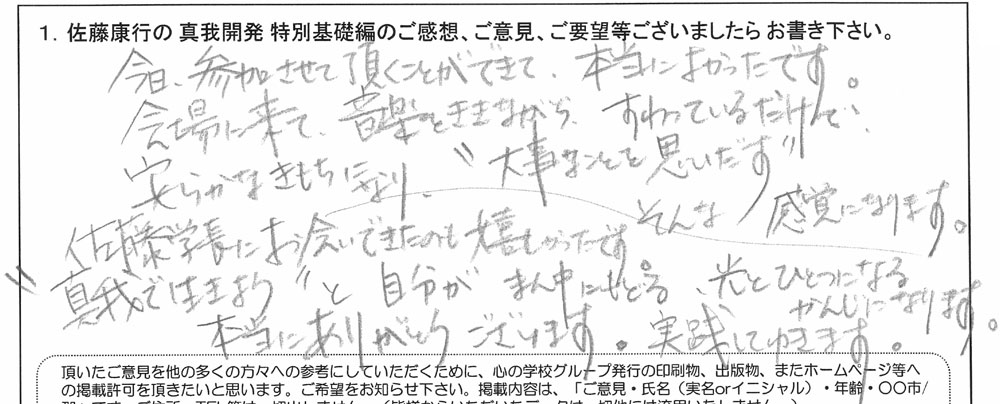 1. 佐藤康行の 真我開発 特別基礎編のご感想、ご意見、ご要望等ございましたら お書き下さい。
今日、参加させて頂くことができて、本当によかったです。
会場に来て、音楽をききながら、すわっているだけで、
安らかなきもちになり、"大事なことを思いだす"
そんな 感覚になります。
佐藤学長にお会いできたのも嬉しかったです。
"真我で生きよう"と自分がまん中にもどる、光とひとつになる
かんじになります。
本当にありがとうございます。実践してゆきます。
頂いたご意見を他の多くの方々への参考にしていただくために、心の学校グループ発行の印刷物、出版物、またホームページ等へ
の掲載許可を頂きたいと思います。ご希望をお知らせ下さい。掲載内容は、「ご意見・氏名（実名orイニシャル）・年齢・〇〇市/